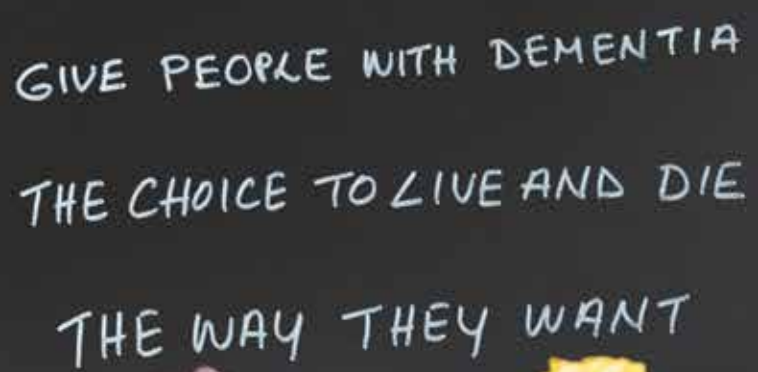 GIVE PEOPLE WITH DEMENTIA
THE CHOICE TO LIVE AND DIE
THE WAY THEY WANT